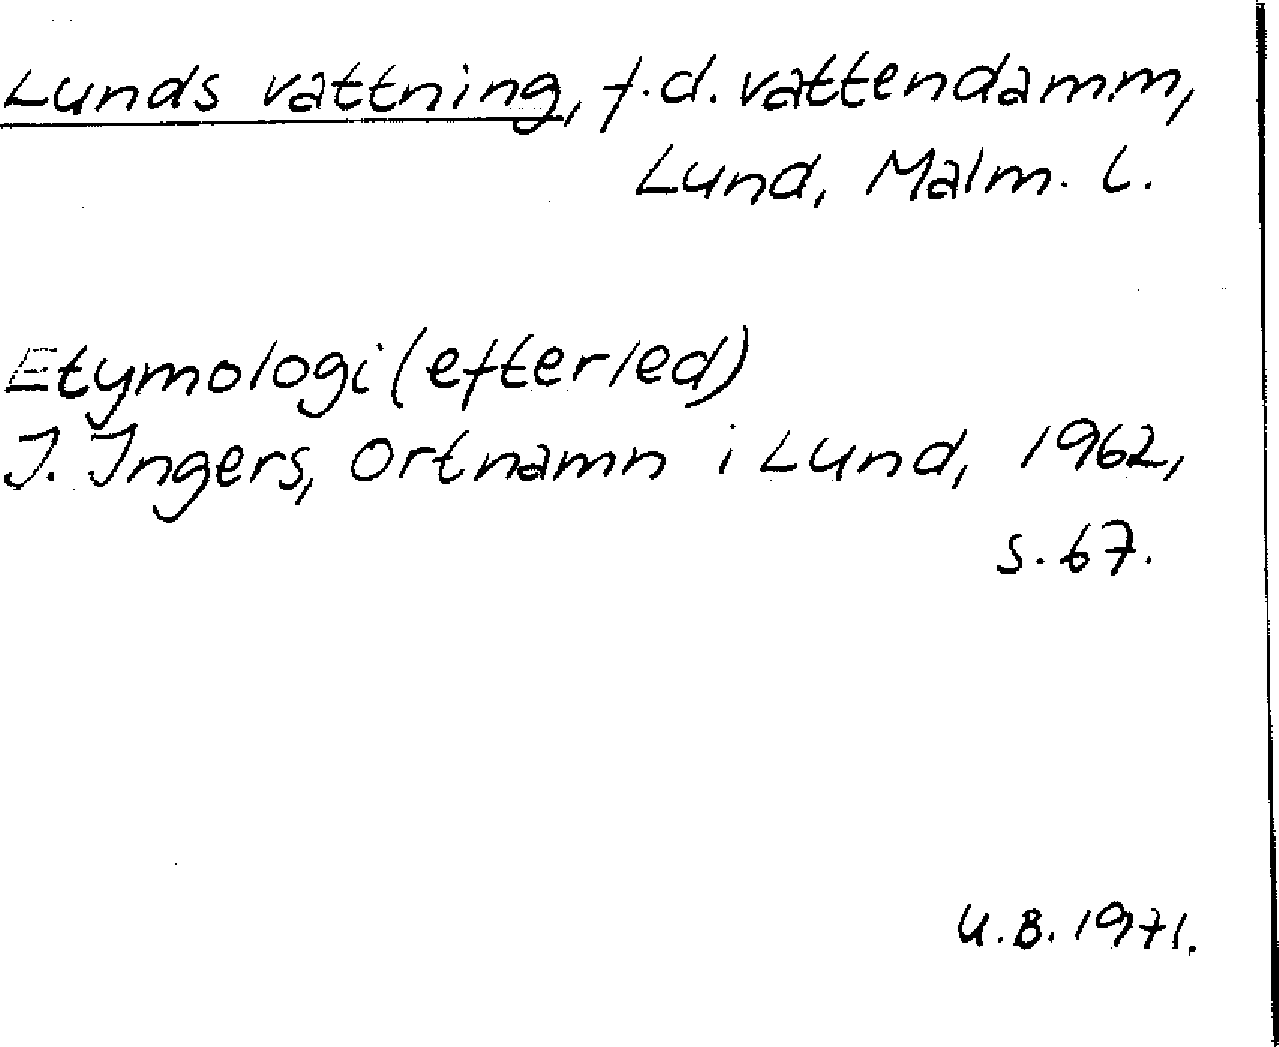 Lunds vattning, f.d. vattendamm,
Lund, Malm. l.
Etymologi (efterled)
J. Ingers, Ortnamn i Lund, 1962,
s. 67.
U.B. 1971.